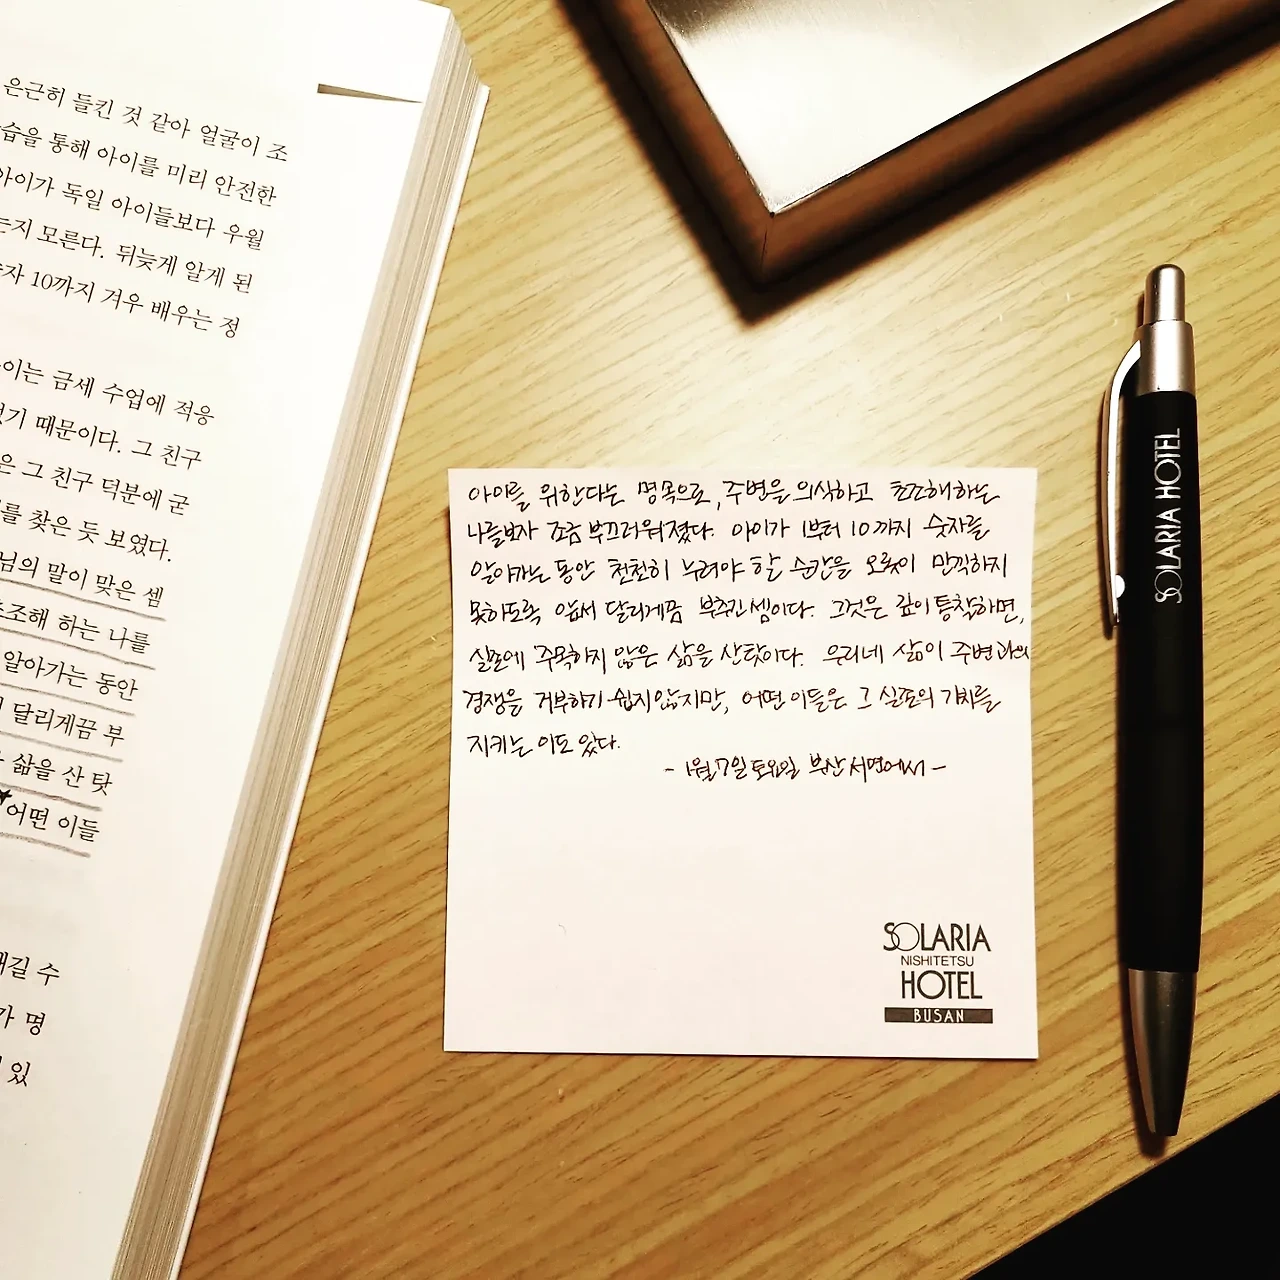 은근히 들킨 것 같아 얼굴이 조
습을 통해 아이를 미리 안전한
아이가 독일 아이들보다 우월
는지 모른다. 뒤늦게 알게 된
자 10까지 겨우 배우는 정
이는 금세 수업에 적응
기 때문이다. 그 친구
은 그 친구 덕분에 굳
를 찾은 듯 보였다.
님의 말이 맞은 셈
초조해 하는 나를
알아가는 동안
달리게끔 부
삶을 산 탓
어떤 이들
내길 수
가 명
있
아이를 위한다는 명목으로, 주변을 의식하고 초조해하는
나를보자 조금 부끄러워졌다. 아이가 1부터 10까지 숫자를
알아가는 동안 천천히 누려야 할 순간을 오롯이 만끽하지
못하도록 앞서 달리게끔 부추긴셈이다. 그것은 깊이통찰하면,
실존에 주목하지 않은 삶을 산탓이다. 우리네 삶이 주변과의
경쟁은 거부하기 쉽지않지만, 어떤 이들은 그 실존의 가치를
지키는 이도 있다.
- 1월 7일 토요일 부산 서면에서 -
SOLARIA
NISHITETSU
HOTEL
BUSAN
SOLARIA HOTEL